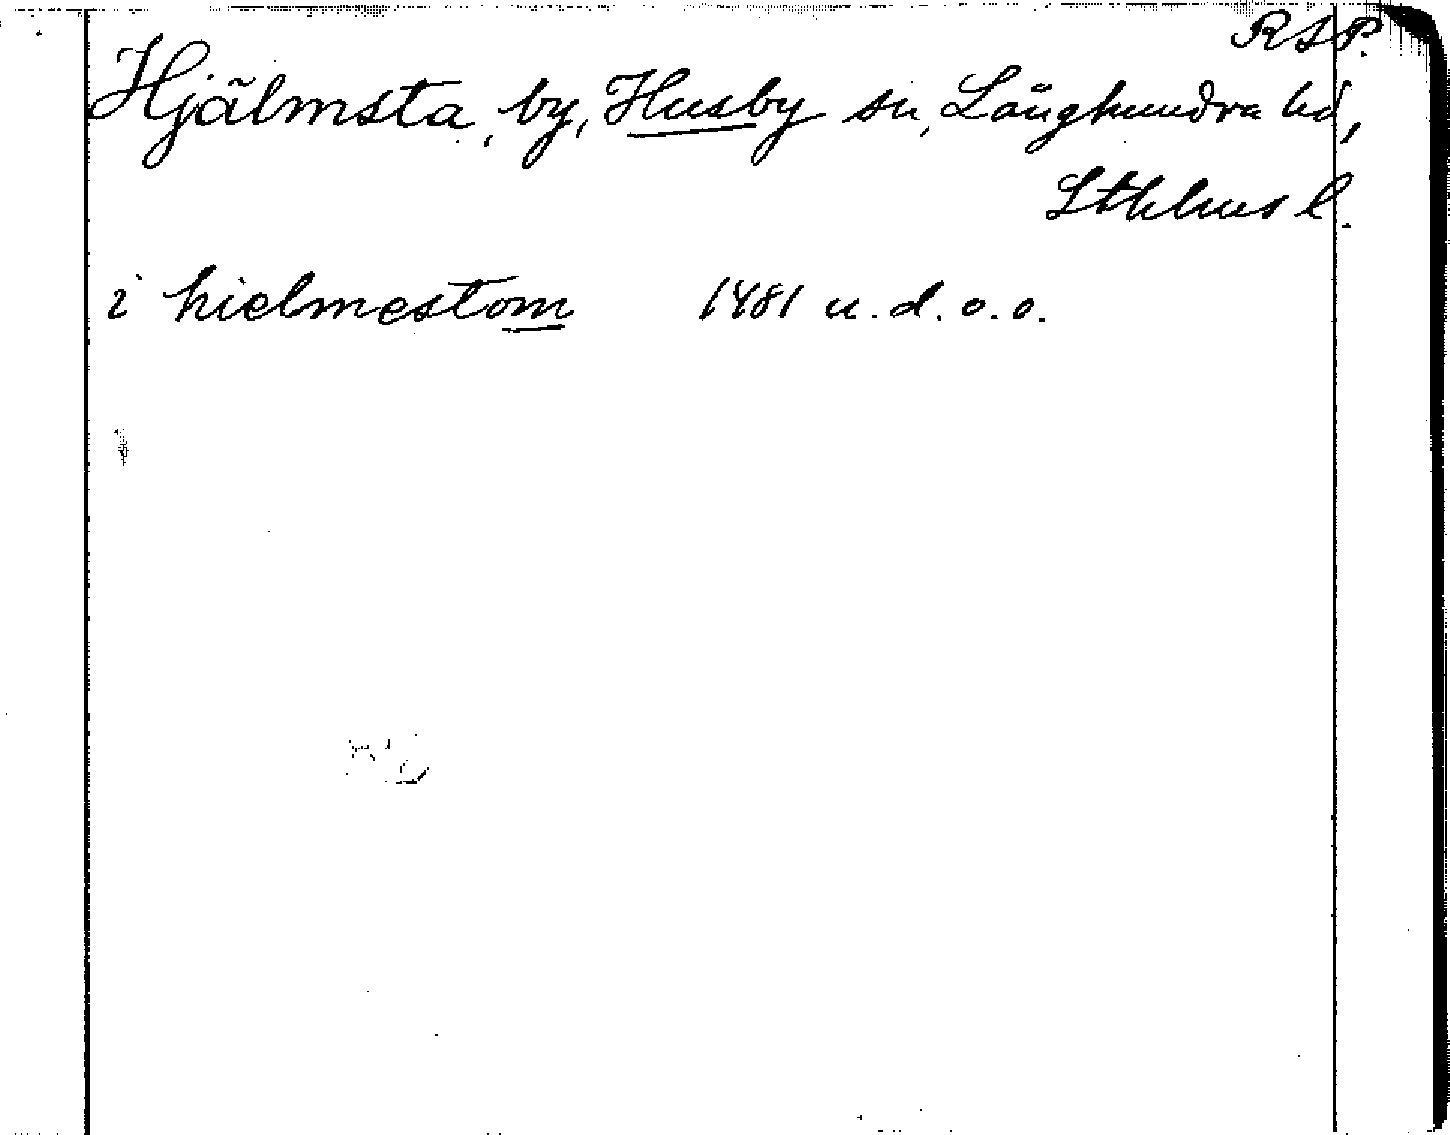 RSP.
Hjälmsta, by, Husby sn, Långhundra hd,
Sthlms l.
i hielmestom 1481 u.d. o.o.